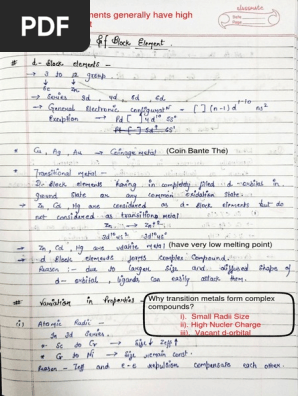 PDF
ments generally have high
classmate
Date
Page
& f Block Element.
# d-Block elements -
→ 3 to 12 group.
Sc Zn
→ Series 3d, 4d, 5d, 6d
→ General Electronic configuratn [ ] (n-1)d¹⁻¹⁰ ns²
Exception → Pd [ ] 4d¹⁰ 5s⁰
* Cu, Ag, Au → Coinage metal (Coin Bante The)
* Transitional metal -
D-Block elements having incompletely filled d-orbital in
ground state or any common oxidation state.
→ Zn, Cd, Hg are considered as d-block elements but do
not considered as transition metal
Zn → Zn²⁺
3d¹⁰4s² 3d¹⁰4s⁰
→ Zn, Cd, Hg are volatile metal (have very low melting point)
→ d Block elements forms complex compound.
Reason :- due to larger size and diffused shape of
d-orbital, ligands can easily attack them.
# Variation in Properties -
Why transition metals form complex
compounds?
i). Small Radii Size
ii). High Nucler Charge
iii). Vacant d-orbital
(i) Atomic Radii -
In 3d Series.
* Sc to Cr → Size ↓ Zeff ↑
* Cr to Ni → Size remain const.
Reason - Zeff and e-e repulsion compensate each other.